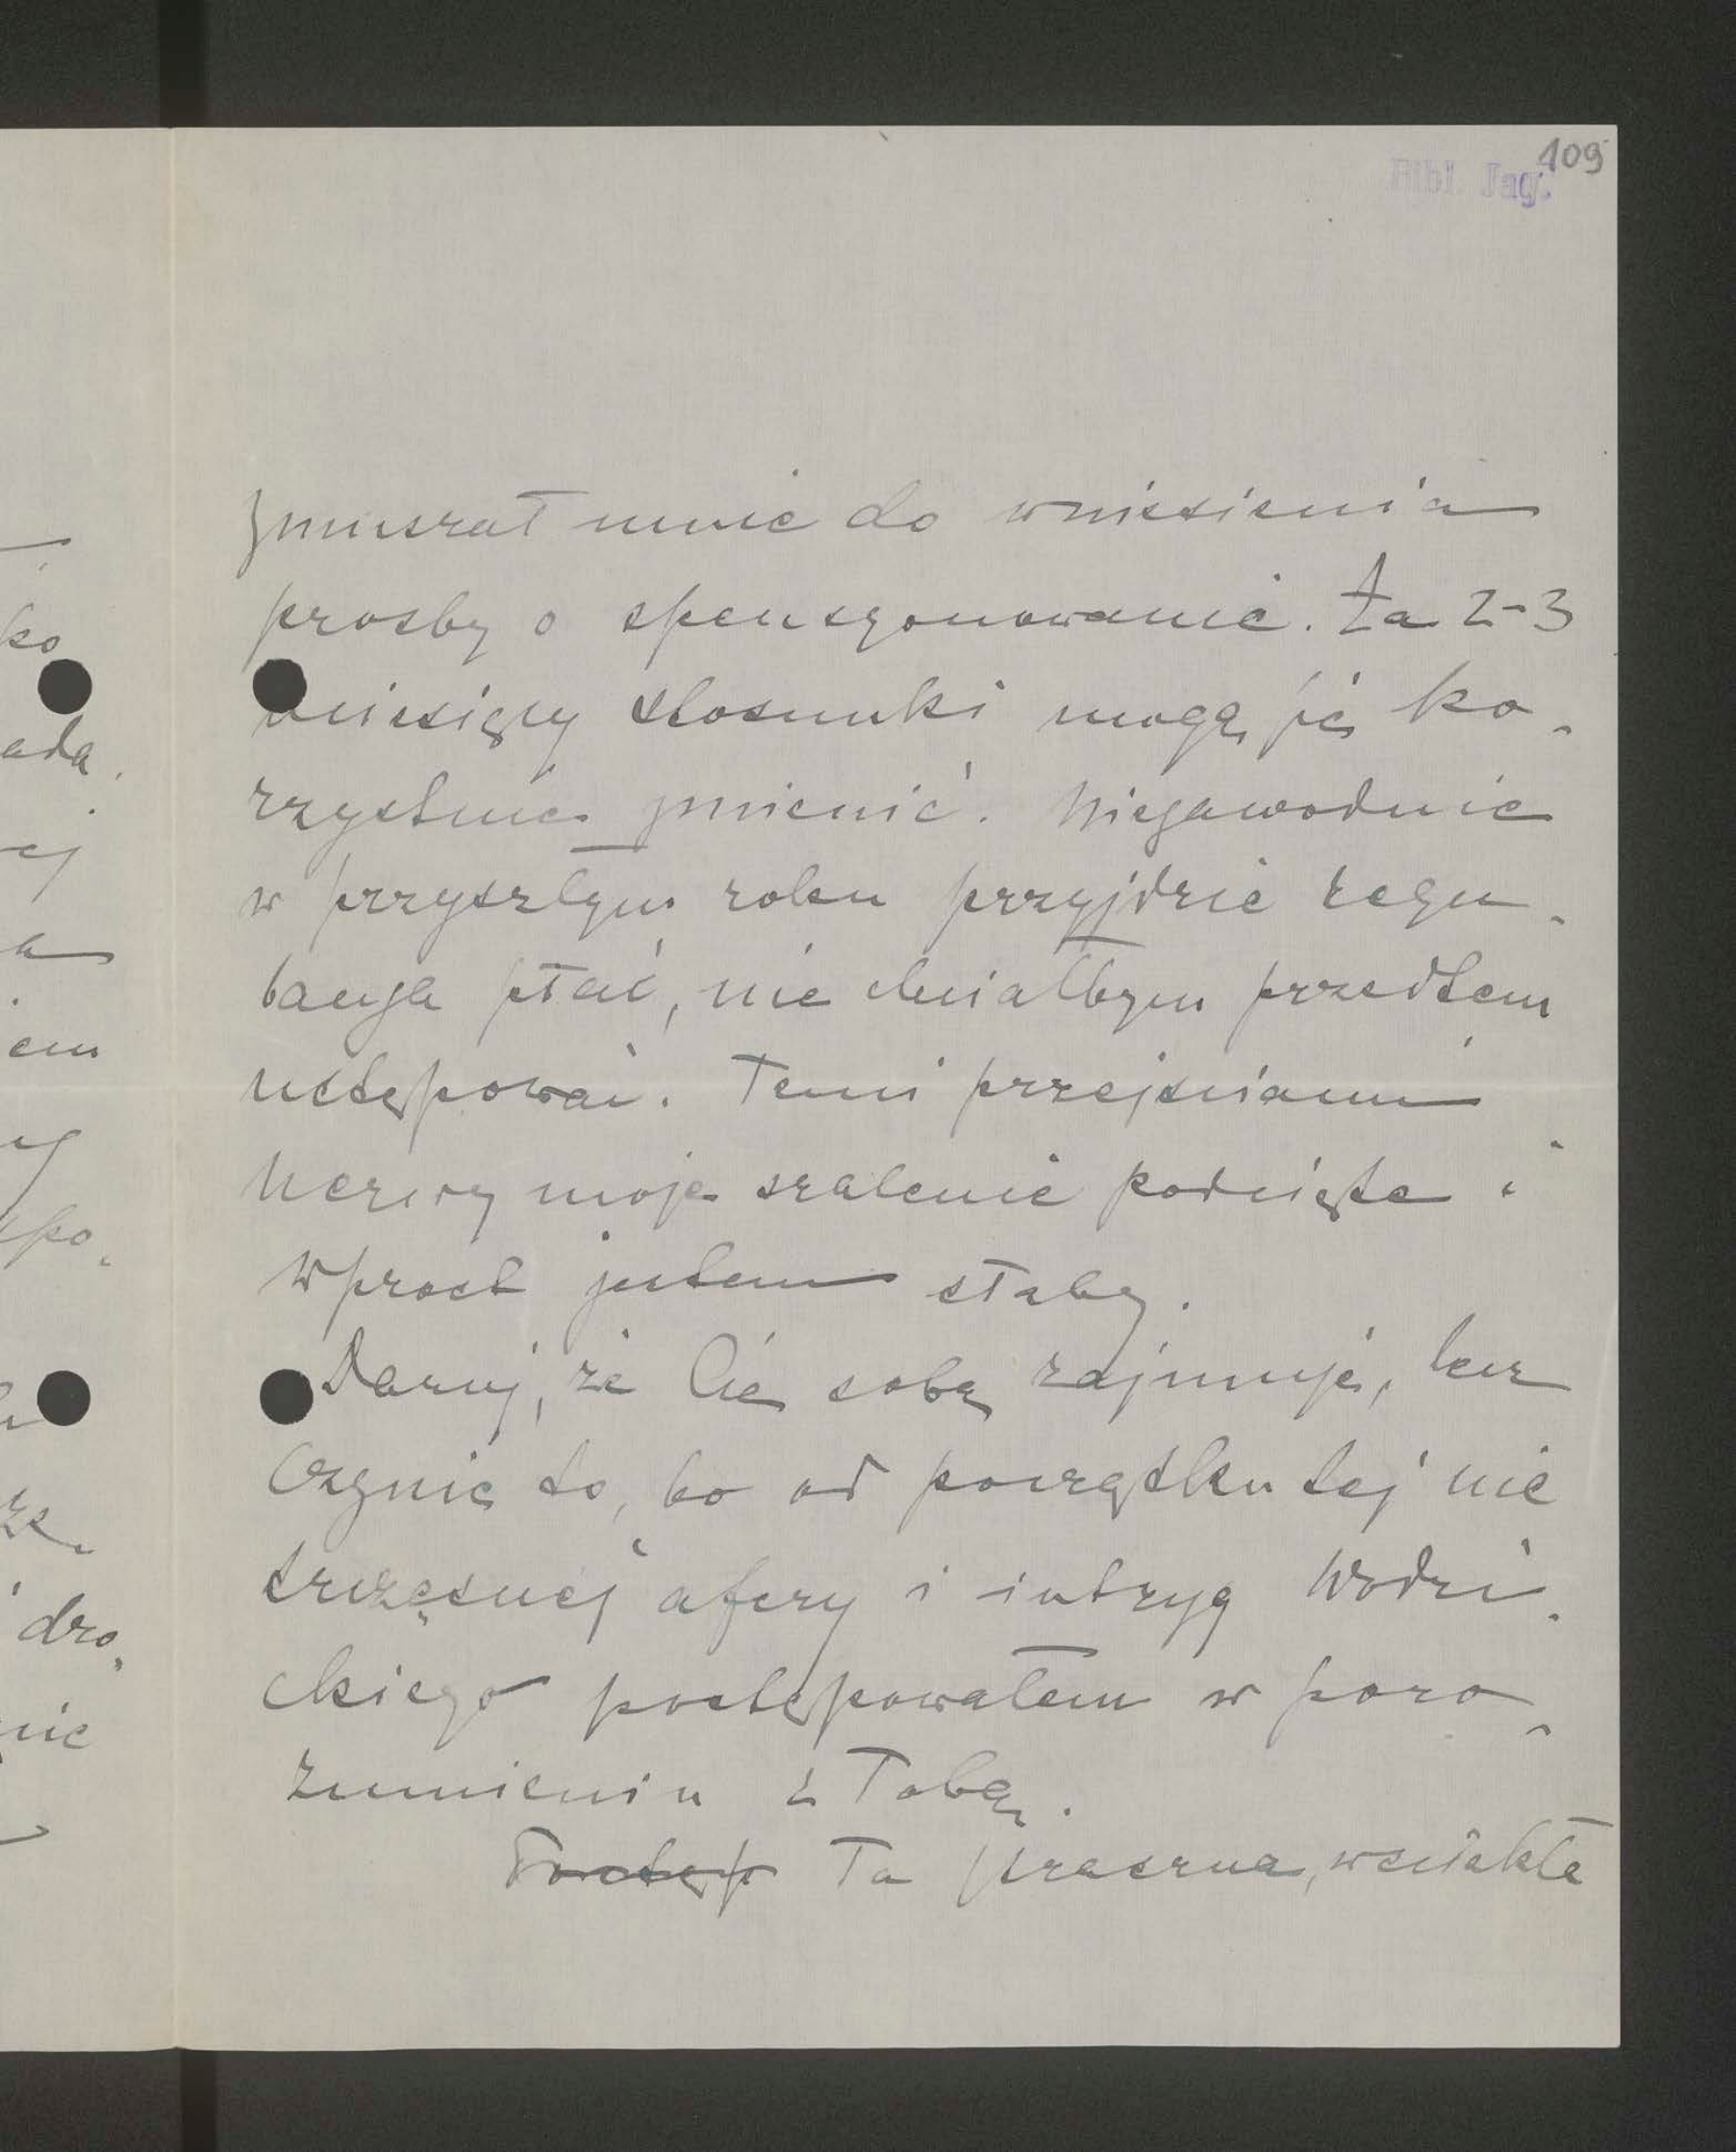 109
Bibl. Jag.
zmuszał mnie do wniesienia
prośby o spensyonowanie. Za 2-3
miesięcy stosunki mogą się ko-
rzystnie zmienić. Niezawodnie
w przyszłym roku przyjdzie regu-
lacya płac, nie chciałbym przedtem
ustępować. Temi przejściami
nerwy moje szalenie podcięte i
wprost jestem słaby.
Daruj, że Cię sobą zajmuję, lecz
czynię to, bo od początku tej nie
szczęsnej afery i intryg Wodzi-
ckiego postępowałem w poro-
zumieniu z Tobą.
Postęp Ta straszna, wściekła
ko
ada
ej
a
em
ej
spo-
że
dro-
nie